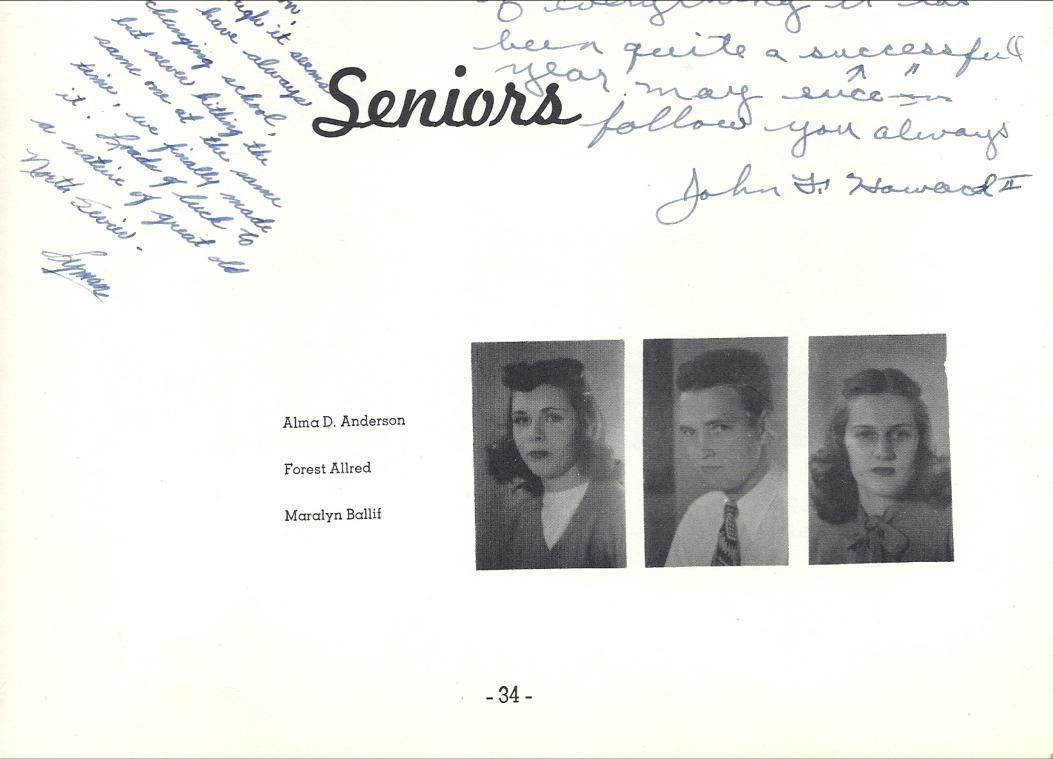 ugh it seems
have always
changing school,
but never hitting the
same one at the same
time, we finally made
it. Loads of luck to
a native of great old
North Sevier.
Lyman
of everything it has
been quite a successfull
year. may succ
follow you always
John F. Howard II
Seniors
Alma D. Anderson
Forest Allred
Maralyn Ballif
- 34 -